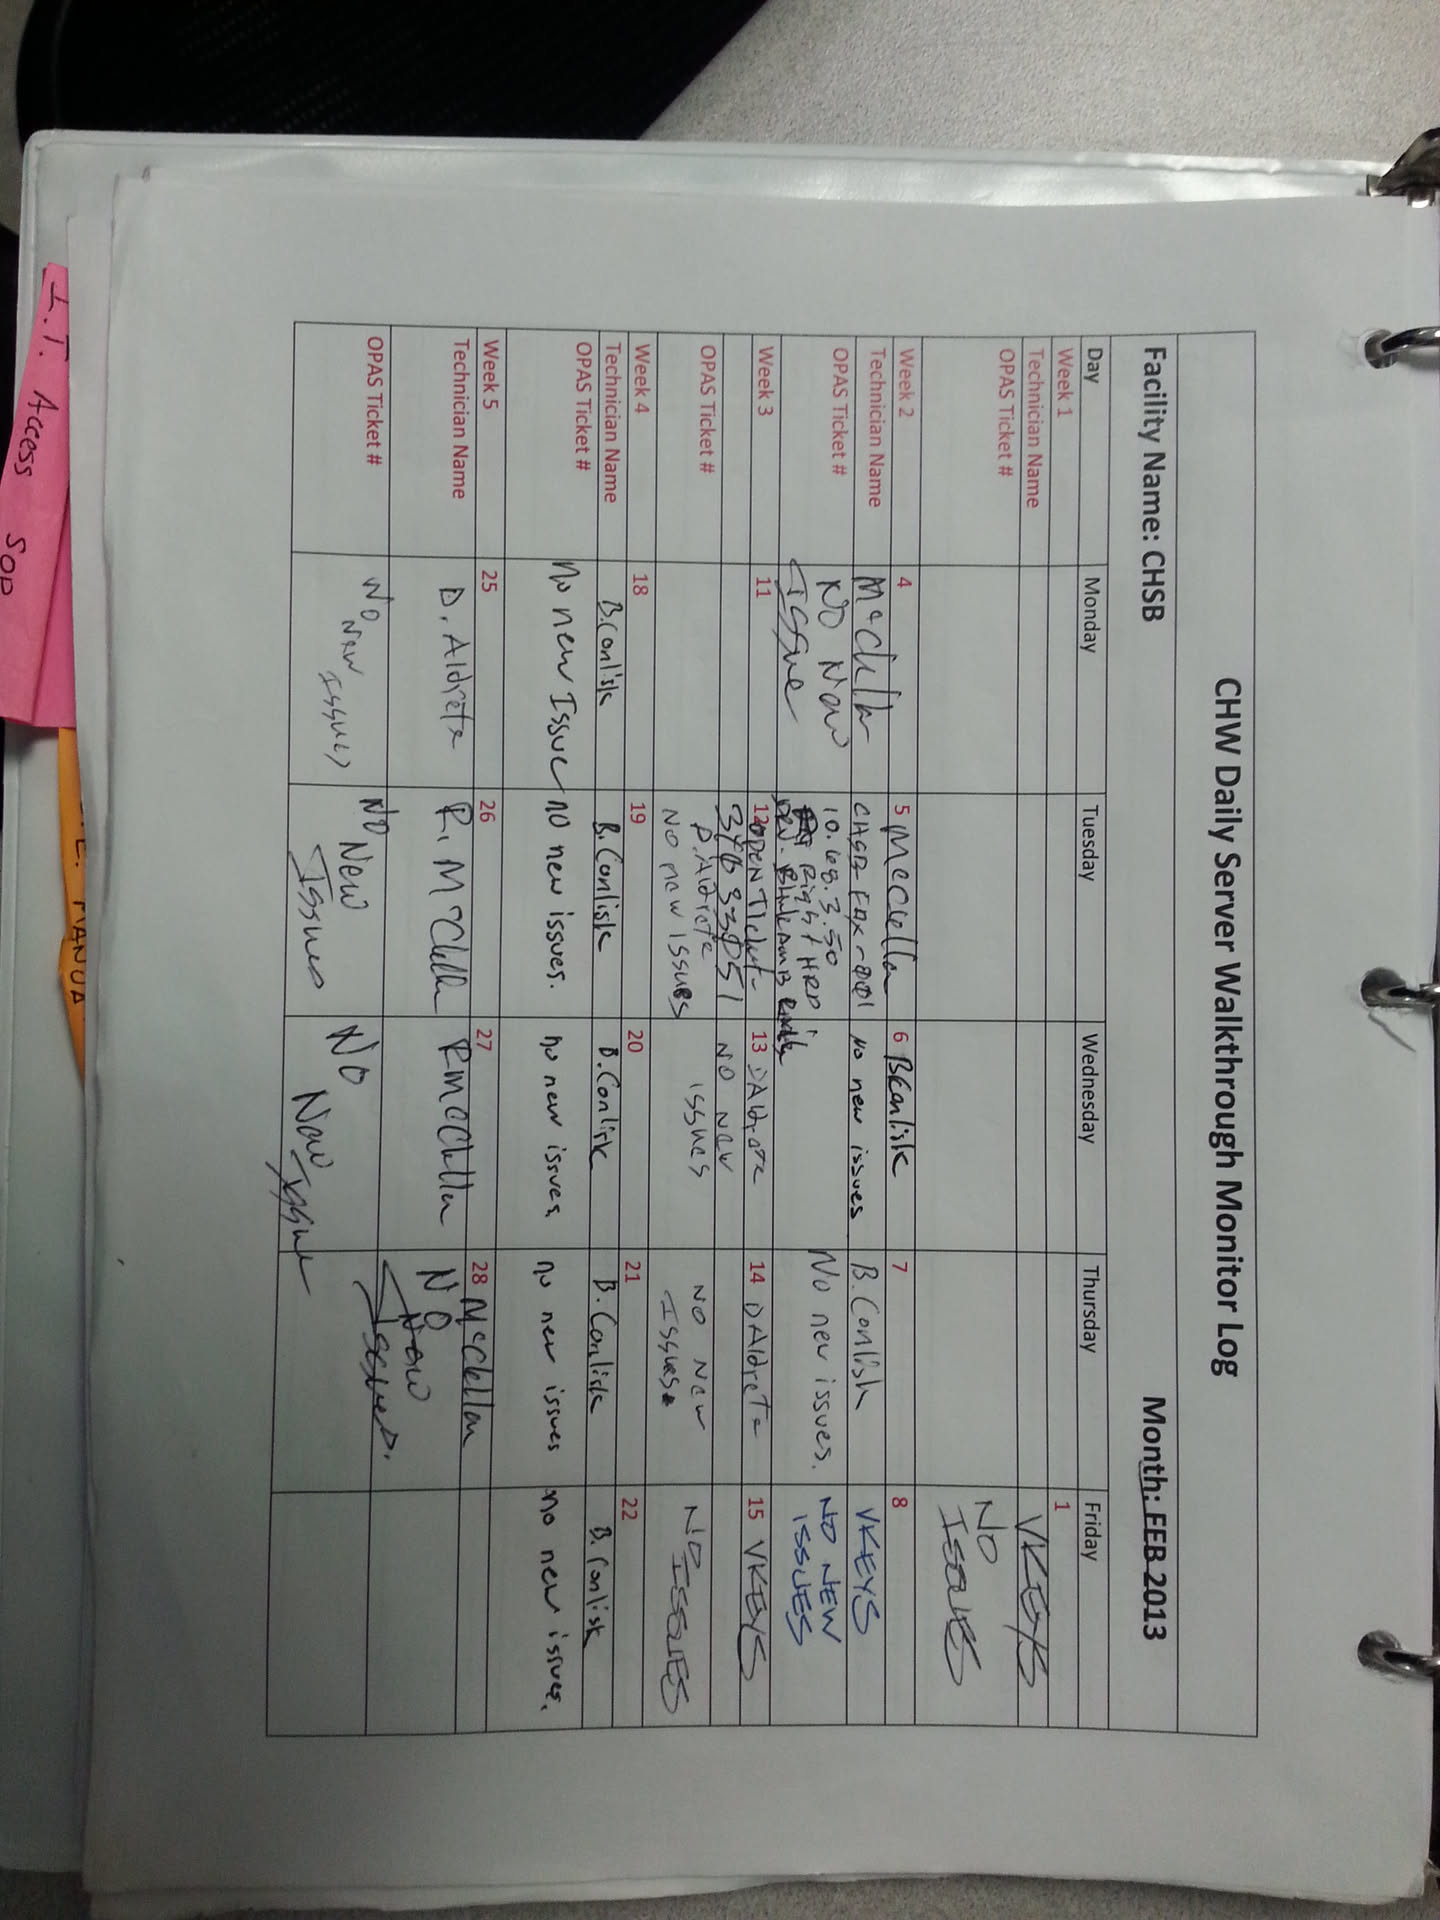 CHW Daily Server Walkthrough Monitor Log
Facility Name: CHSB Month: FEB 2013
Day Monday Tuesday Wednesday Thursday Friday
Week 1 1
Technician Name VKEYS
OPAS Ticket # NO
ISSUES
Week 2 4 5 McClellan 6 BConlisk 7 8
Technician Name McClelln CHSB-FAX-001 No new issues B. Conlisk VKEYS
OPAS Ticket # NO New 10.68.3.50 No new issues. NO NEW
Issue Right HRD ISSUES
Week 3 11 12 OPEN Ticket 13 DAldrete 14 DAldrete 15 VKEYS
34633051 NO New
OPAS Ticket # D. Aldrete issues NO New NO
NO new issues Issues. ISSUES
Week 4 18 19 20 21 22
Technician Name B. Conlisk B. Conlisk B. Conlisk B. Conlisk B. Conlisk
OPAS Ticket # No new Issue no new issues. no new issues, no new issues no new issues.
Week 5 25 26 27 28 McClellan
Technician Name D. Aldrete R. McClellan RMcClellan NO
New
OPAS Ticket # No New Issues NO New Issues NO New Issue Issues.
I.T. Access SOP
MANUA